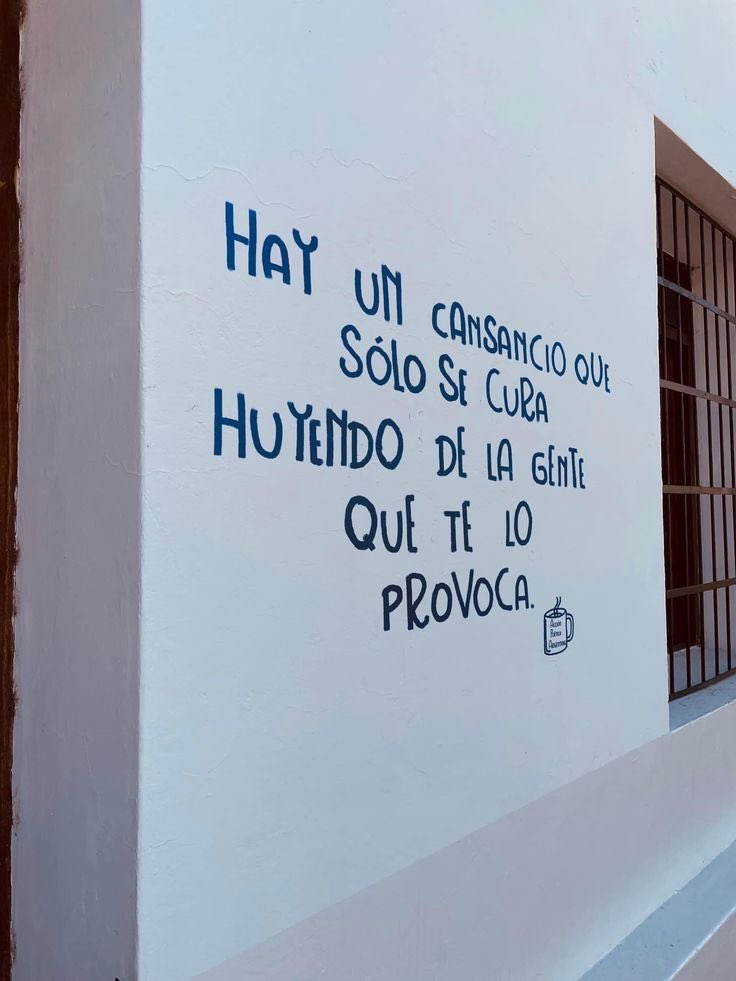 HAY UN CANSANCIO QUE
SÓLO SE CURA
HUYENDO DE LA GENTE
QUE TE LO
PROVOCA.
Acción
Poética